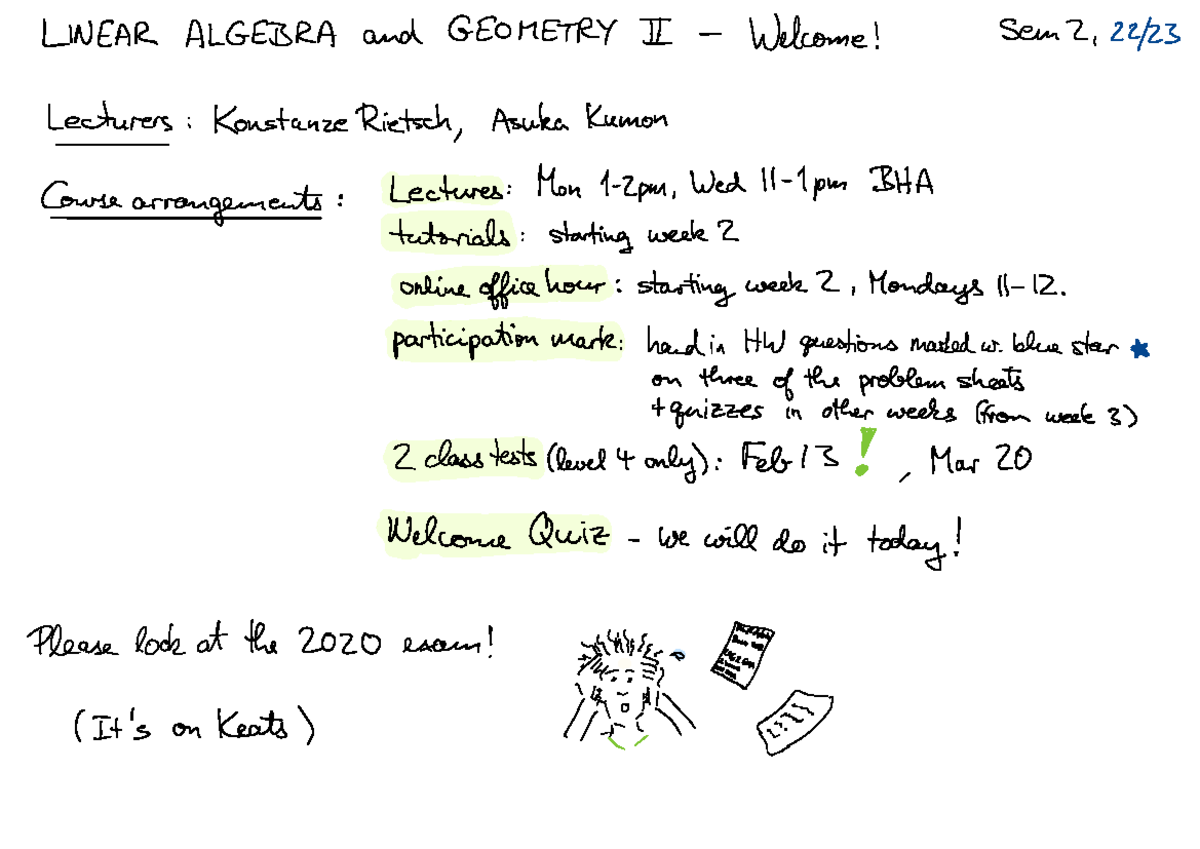 LINEAR ALGEBRA and GEOMETRY II – Welcome! Sem 2, 22/23
Lecturers: Konstanze Rietsch, Asuka Kumon
Course arrangements: Lectures: Mon 1-2pm, Wed 11-1pm BHA
tutorials: starting week 2
online office hour: starting week 2, Mondays 11-12.
participation mark: hand in HW questions marked w. blue star ★
on three of the problem sheets
+ quizzes in other weeks (from week 3)
2 class tests (level 4 only): Feb 13!, Mar 20
Welcome Quiz - we will do it today!
Please look at the 2020 exam!
(It's on Keats)